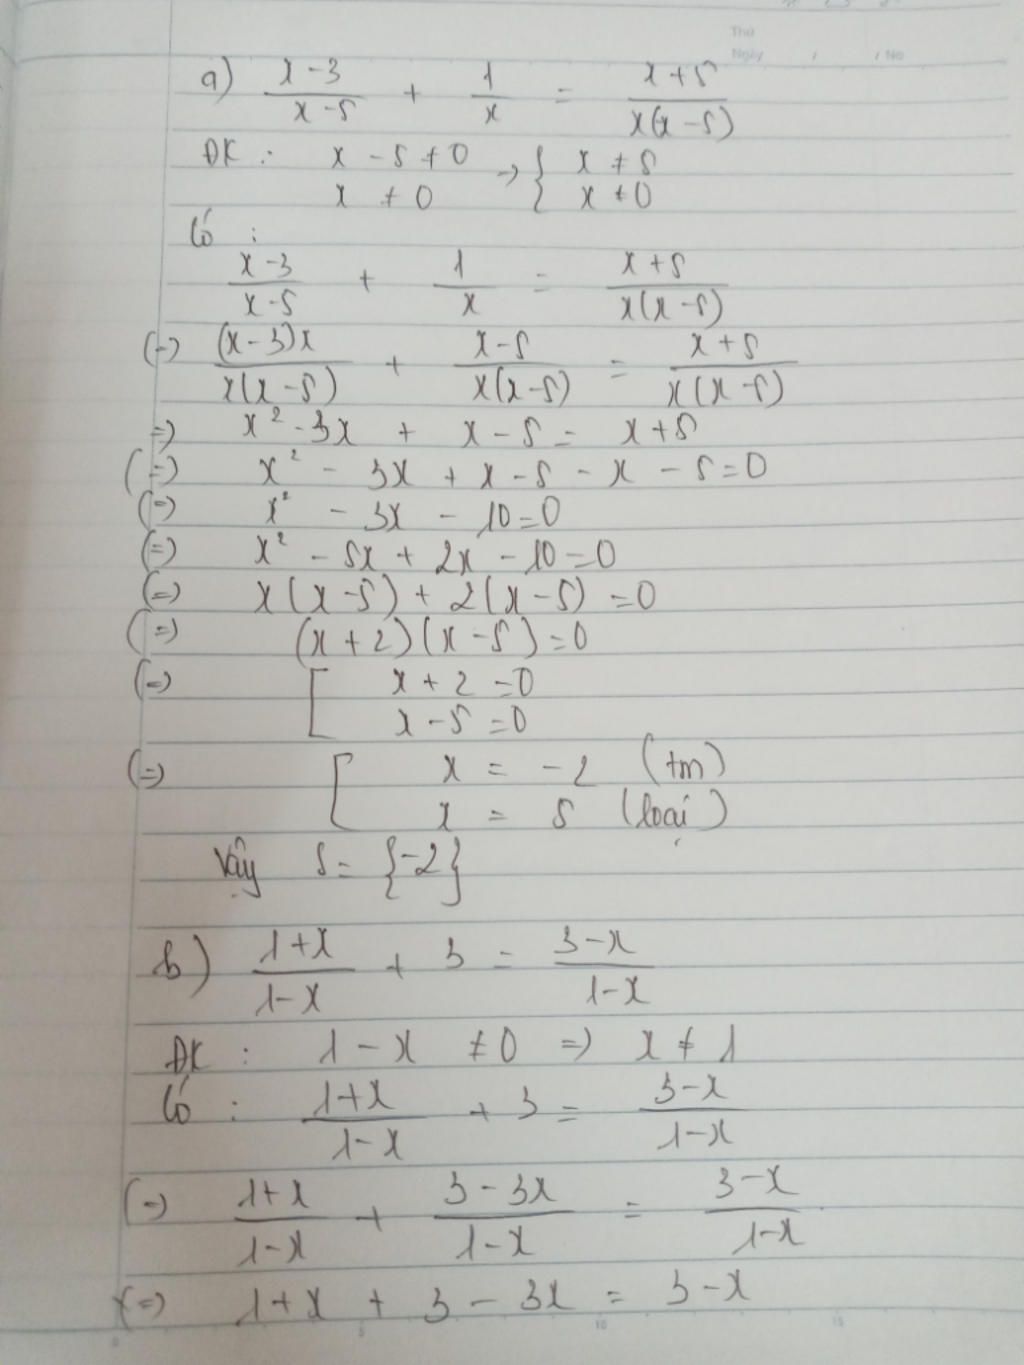 Thứ
Ngày / / No
a) (x-3)/(x-5) + 1/x = (x+5)/(x(x-5))
ĐK : x - 5 ≠ 0 → { x ≠ 5
x ≠ 0 x ≠ 0
Có :
(x-3)/(x-5) + 1/x = (x+5)/(x(x-5))
(=) ((x-3)x)/(x(x-5)) + (x-5)/(x(x-5)) = (x+5)/(x(x-5))
=) x² - 3x + x - 5 = x + 5
(=) x² - 3x + x - 5 - x - 5 = 0
(=) x² - 3x - 10 = 0
(=) x² - 5x + 2x - 10 = 0
(=) x(x-5) + 2(x-5) = 0
(=) (x+2)(x-5) = 0
(=) [ x + 2 = 0
x - 5 = 0
(=) [ x = -2 (tm)
x = 5 (loại)
Vậy S = {-2}
b) (1+x)/(1-x) + 3 = (3-x)/(1-x)
ĐK : 1 - x ≠ 0 =) x ≠ 1
Có : (1+x)/(1-x) + 3 = (3-x)/(1-x)
(=) (1+x)/(1-x) + (3-3x)/(1-x) = (3-x)/(1-x)
(=) 1+x + 3 - 3x = 3-x
0 5 10 15